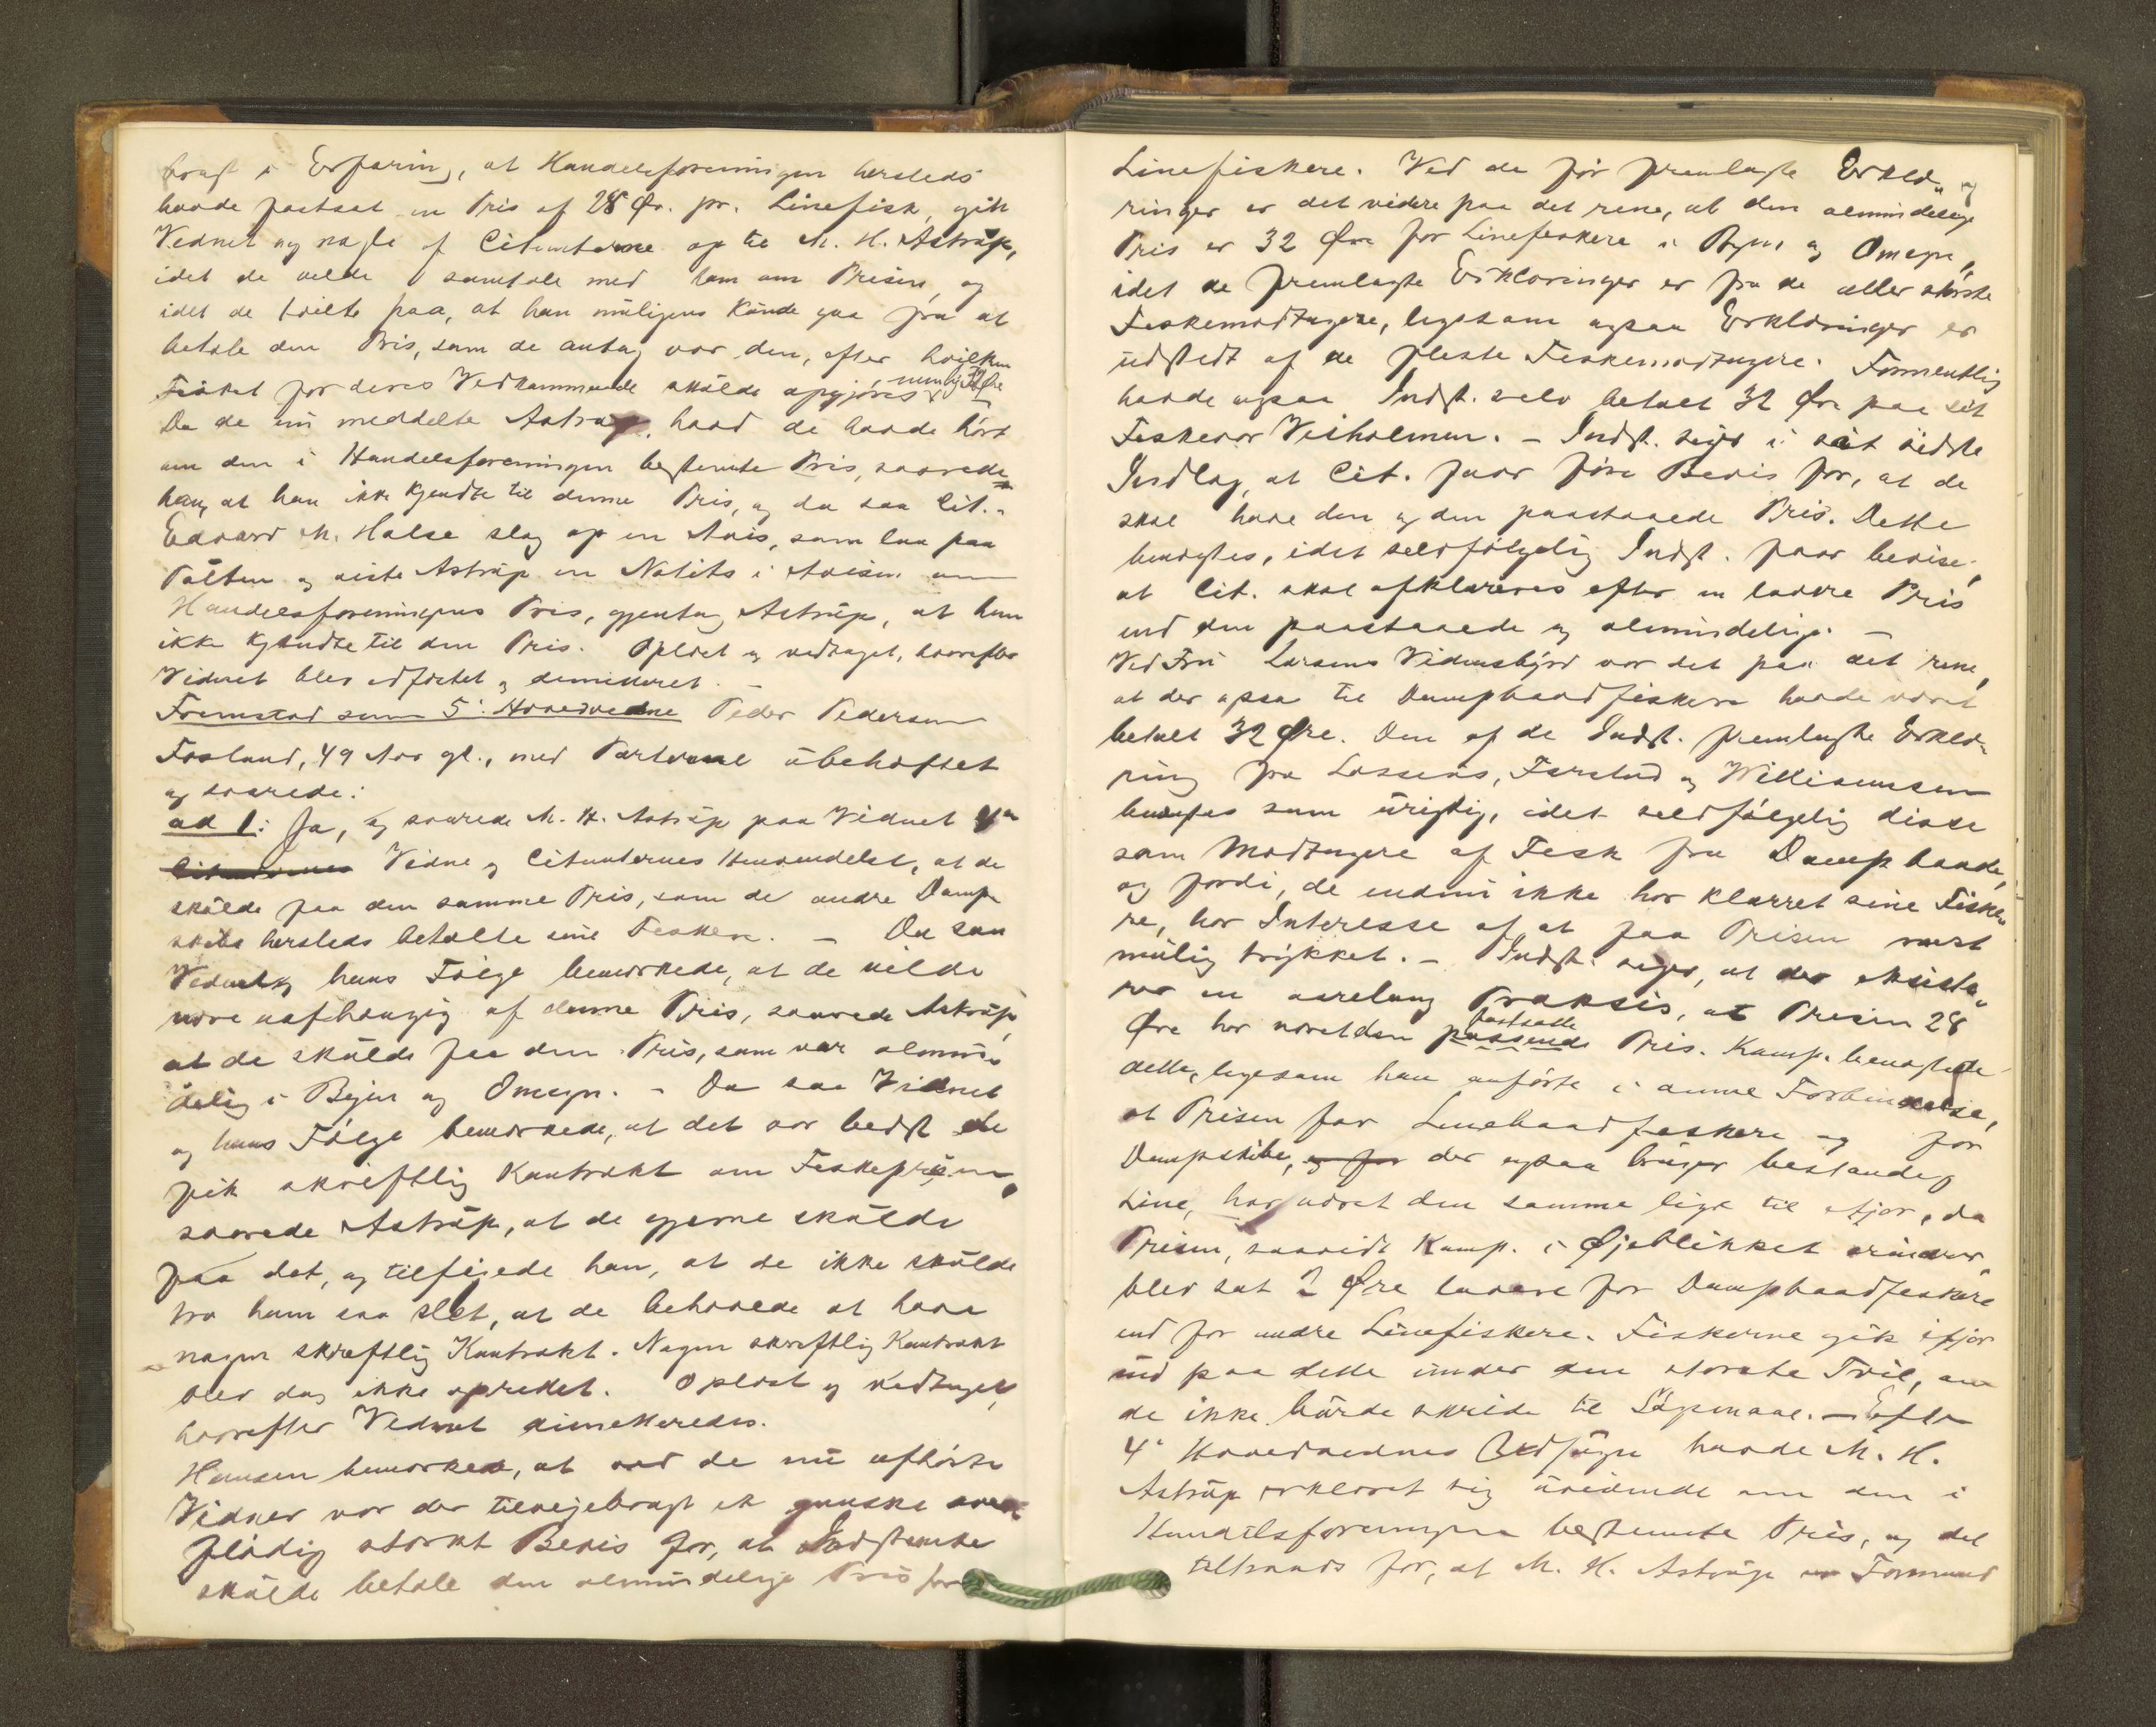 bragt i Erfaring, at Handelsforeningen hersteds
havde fastsat en Pris af 28 Øre pr. Linefisk, gik
Vidnet og nogle af Citanterne op til M. H. Astrup,
idet de vilde samtale med ham om Prisen, og
idet de tvilte paa, at han muligens kunde gaa fra at
betale den Pris, som de antog var den, efter hvilken
Fisket for deres Vedkommende skulde opgjøres, nemlig 32 Øre
Da de nu meddelte Astrup, hvad de havde hørt
om den i Handelsforeningen bestemte Pris, svarede
han, at han ikke kjendte til denne Pris, og da saa Cit.
Edvard M. Halse slog op en Avis, som laa paa
Pulten og viste Astrup en Notits i Avisen om
Handelsforeningens Pris, gjentog Astrup, at han
ikke kjendte til den Pris. Oplæst og vedtaget, hvorefter
Vidnet blev edfæstet og dimitteret. –
Fremstod som 5' Hovedvidne Peder Pedersen
Fosland, 49 Aar gl., med Parterne ubehæftet
og svarede:
ad 1: Ja, og svarede M. H. Astrup paa Vidnet
Citanternes Vidne og Citanternes Henvendelse, at de
skulde faa den samme Pris, som de andre Damp
skibe hersteds betalte sine Fiskere. – Da saa
Vidnet og hans Følge bemærkede, at de vilde
være uafhængig af denne Pris, svarede Astrup,
at de skulde faa den Pris, som var almin
delig i Byen og Omegn. – Da saa Vidnet
og hans Følge bemærkede, at det var bedst de
fik skriftlig Kontrakt om Fiskeprisen,
svarede Astrup, at de gjerne skulde
faa det, og tilføiede han, at de ikke skulde
tro ham saa slet, at de behøvede at have
nogen skriftlig Kontrakt. Nogen skriftlig Kontrakt
blev dog ikke oprettet. Oplæst og vedtaget,
hvorefter Vidnet dimitteredes.
Hansen bemærkede, at ved de nu afhørte
Vidner var der tilvejebragt et ganske over
flødig stærkt Bevis for, at Indstevnte
skulde betale den almindelige Pris for
Linefiskere. Ved de før fremlagte Erklæ
ringer er det videre paa det rene, at den almindelige
Pris er 32 Øre for Linefiskere i Byen og Omegn,
idet de fremlagte Erklæringer er fra de aller største
Fiskemodtagere, ligesom ogsaa Erklæringer er
udstedt af de fleste Fiskemodtagere. Formentlig
havde ogsaa Indst. selv betalt 32 Øre paa sit
Fiskevær Vesholmen. – Indst. siger i sit sidste
Indlæg, at Cit. faar føre Bevis for, at de
skal have den og den paastaaede Pris. Dette
benægtes, idet selvfølgelig Indst. faar bevise,
at Cit. skal afklareres efter en lavere Pris
end den paastaaede og almindelige. –
Ved Fru Larsens Vidnesbyrd var det paa det rene,
at der ogsaa til Dampbaadfiskere havde været
betalt 32 Øre. Den af de Indst. fremlagte Erklæ
ring fra Lossius, Farstad og Williamsen
benægtes som urigtig, idet selvfølgelig disse
som Modtagere af Fisk fra Dampbaade,
og fordi, de endnu ikke har klarret sine Fiske
re, har Interesse af at faa Prisen mest
mulig trykket. – Indst. siger, at der eksiste
rer en aarelang Praksis, at Prisen 28
Øre har været den passende fastsatte Pris. Komp. benægtede
dette, ligesom han anførte i denne Forbindelse,
at Prisen for Linebaadfiskere og for
Dampskibe, og for der ogsaa bruger bestandig
Line, har været den samme lige til ifjor, da
Prisen, saavidt Komp. i Øjeblikket erindrer,
blev sat 2 Øre lavere for Dampbaadfiskere
end for andre Linefiskere. Fiskerne gik ifjor
ind paa dette under den største Tvil, om
de ikke burde skride til Søgsmaal. – Efter
4' Hovedvidnes Udsagn havde M. H.
Astrup erklæret sig uvidende om den i
Handelsforeningen bestemte Pris, og det
tiltrods for, at M. H. Astrup var Formand